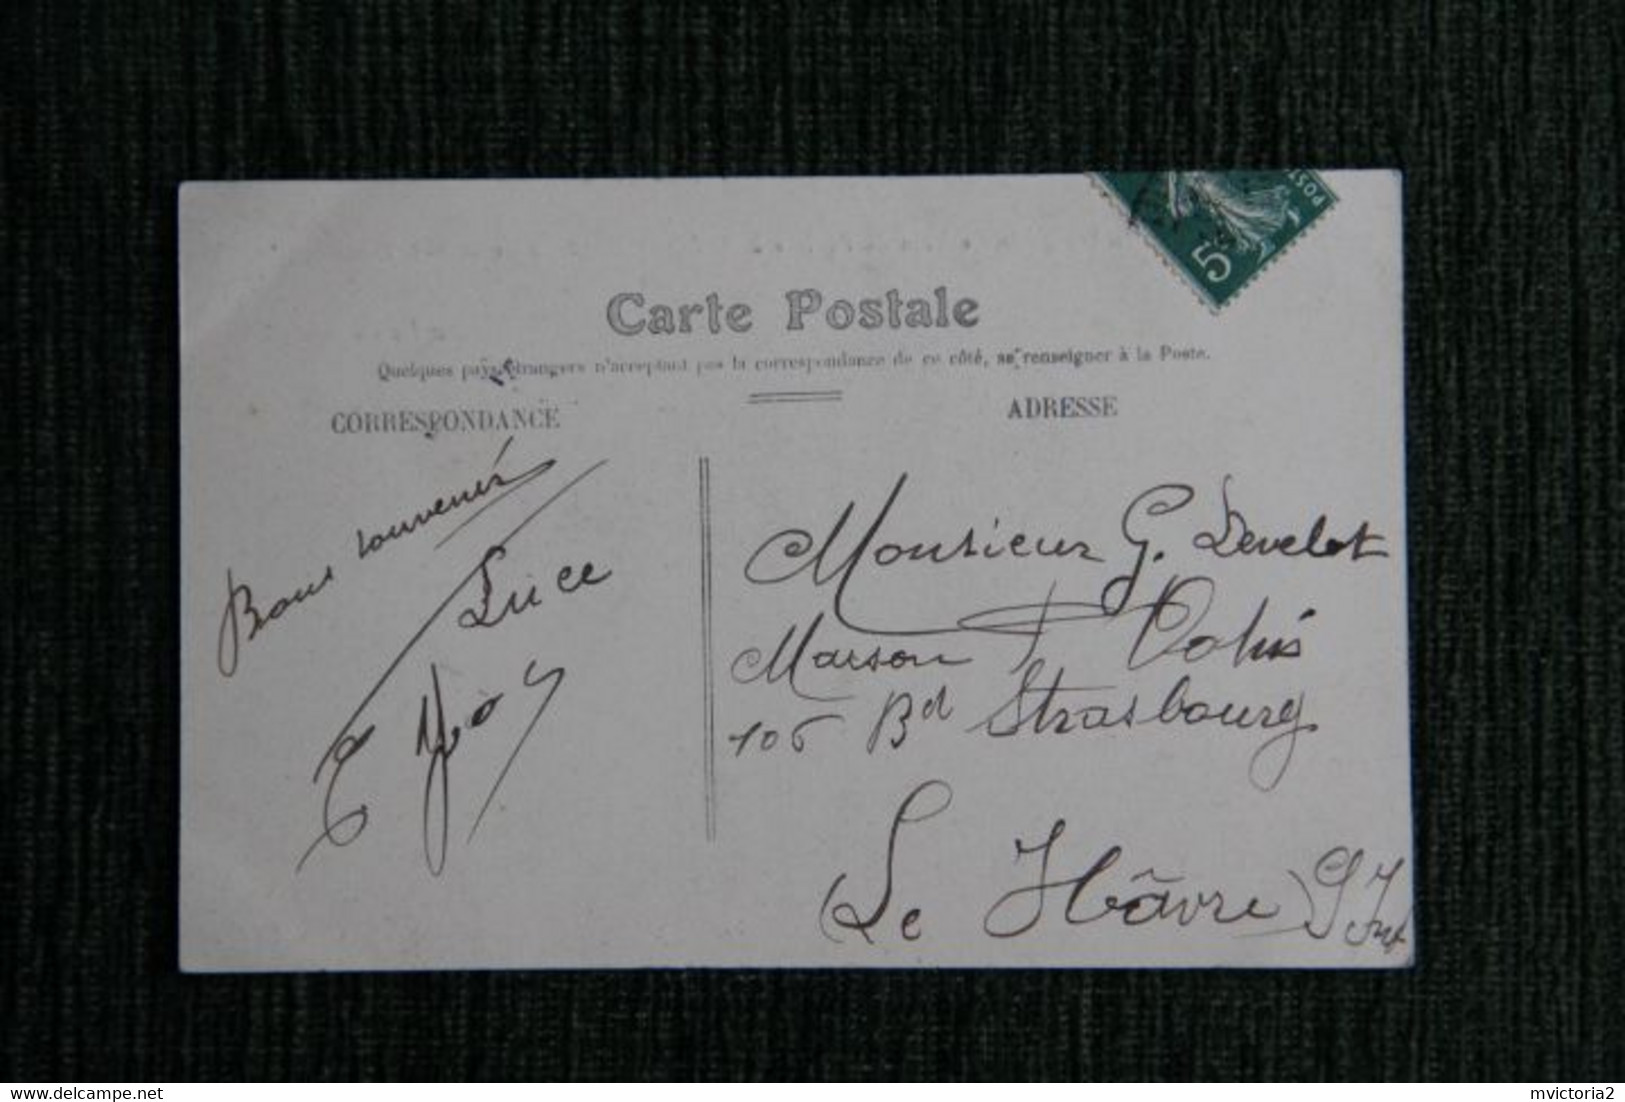 POST
5
Carte Postale
Quelques pays étrangers n'acceptent pas la correspondance de ce côté, se renseigner à la Poste.
CORRESPONDANCE
ADRESSE
Bons souvenirs
Luce
Monsieur G. Develot
Maison
106 Bd Strasbourg
(Le Hâvre) S. Infre
www.delcampe.net
mvictoria2